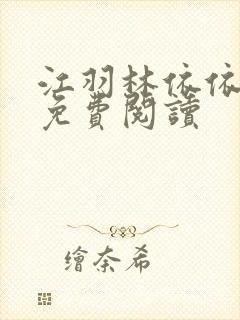 江羽林依依
免費閱讀
繪奈希